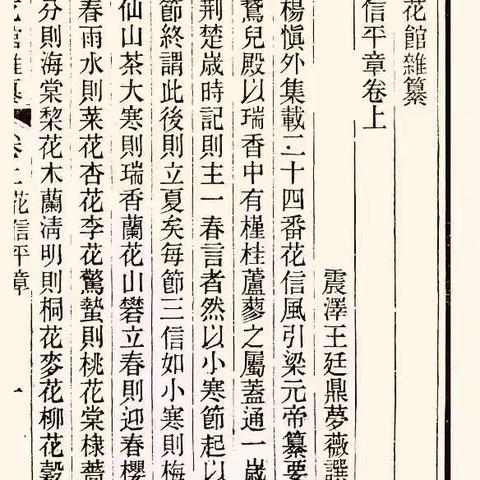 花館雜纂
信平章卷上
震澤王廷鼎夢薇譔
楊愼外集載二十四番花信風引梁元帝纂要
鵞兒殿以瑞香中有槿桂蘆蓼之屬蓋通一歲
荆楚歲時記則主一春言者然以小寒節起以
節終謂此後則立夏矣每節三信如小寒則梅
仙山茶大寒則瑞香蘭花山礬立春則迎春櫻
春雨水則菜花杏花李花驚蟄則桃花棠棣薔
分則海棠棃花木蘭淸明則桐花麥花柳花
花館雜纂 卷上花信平章 一